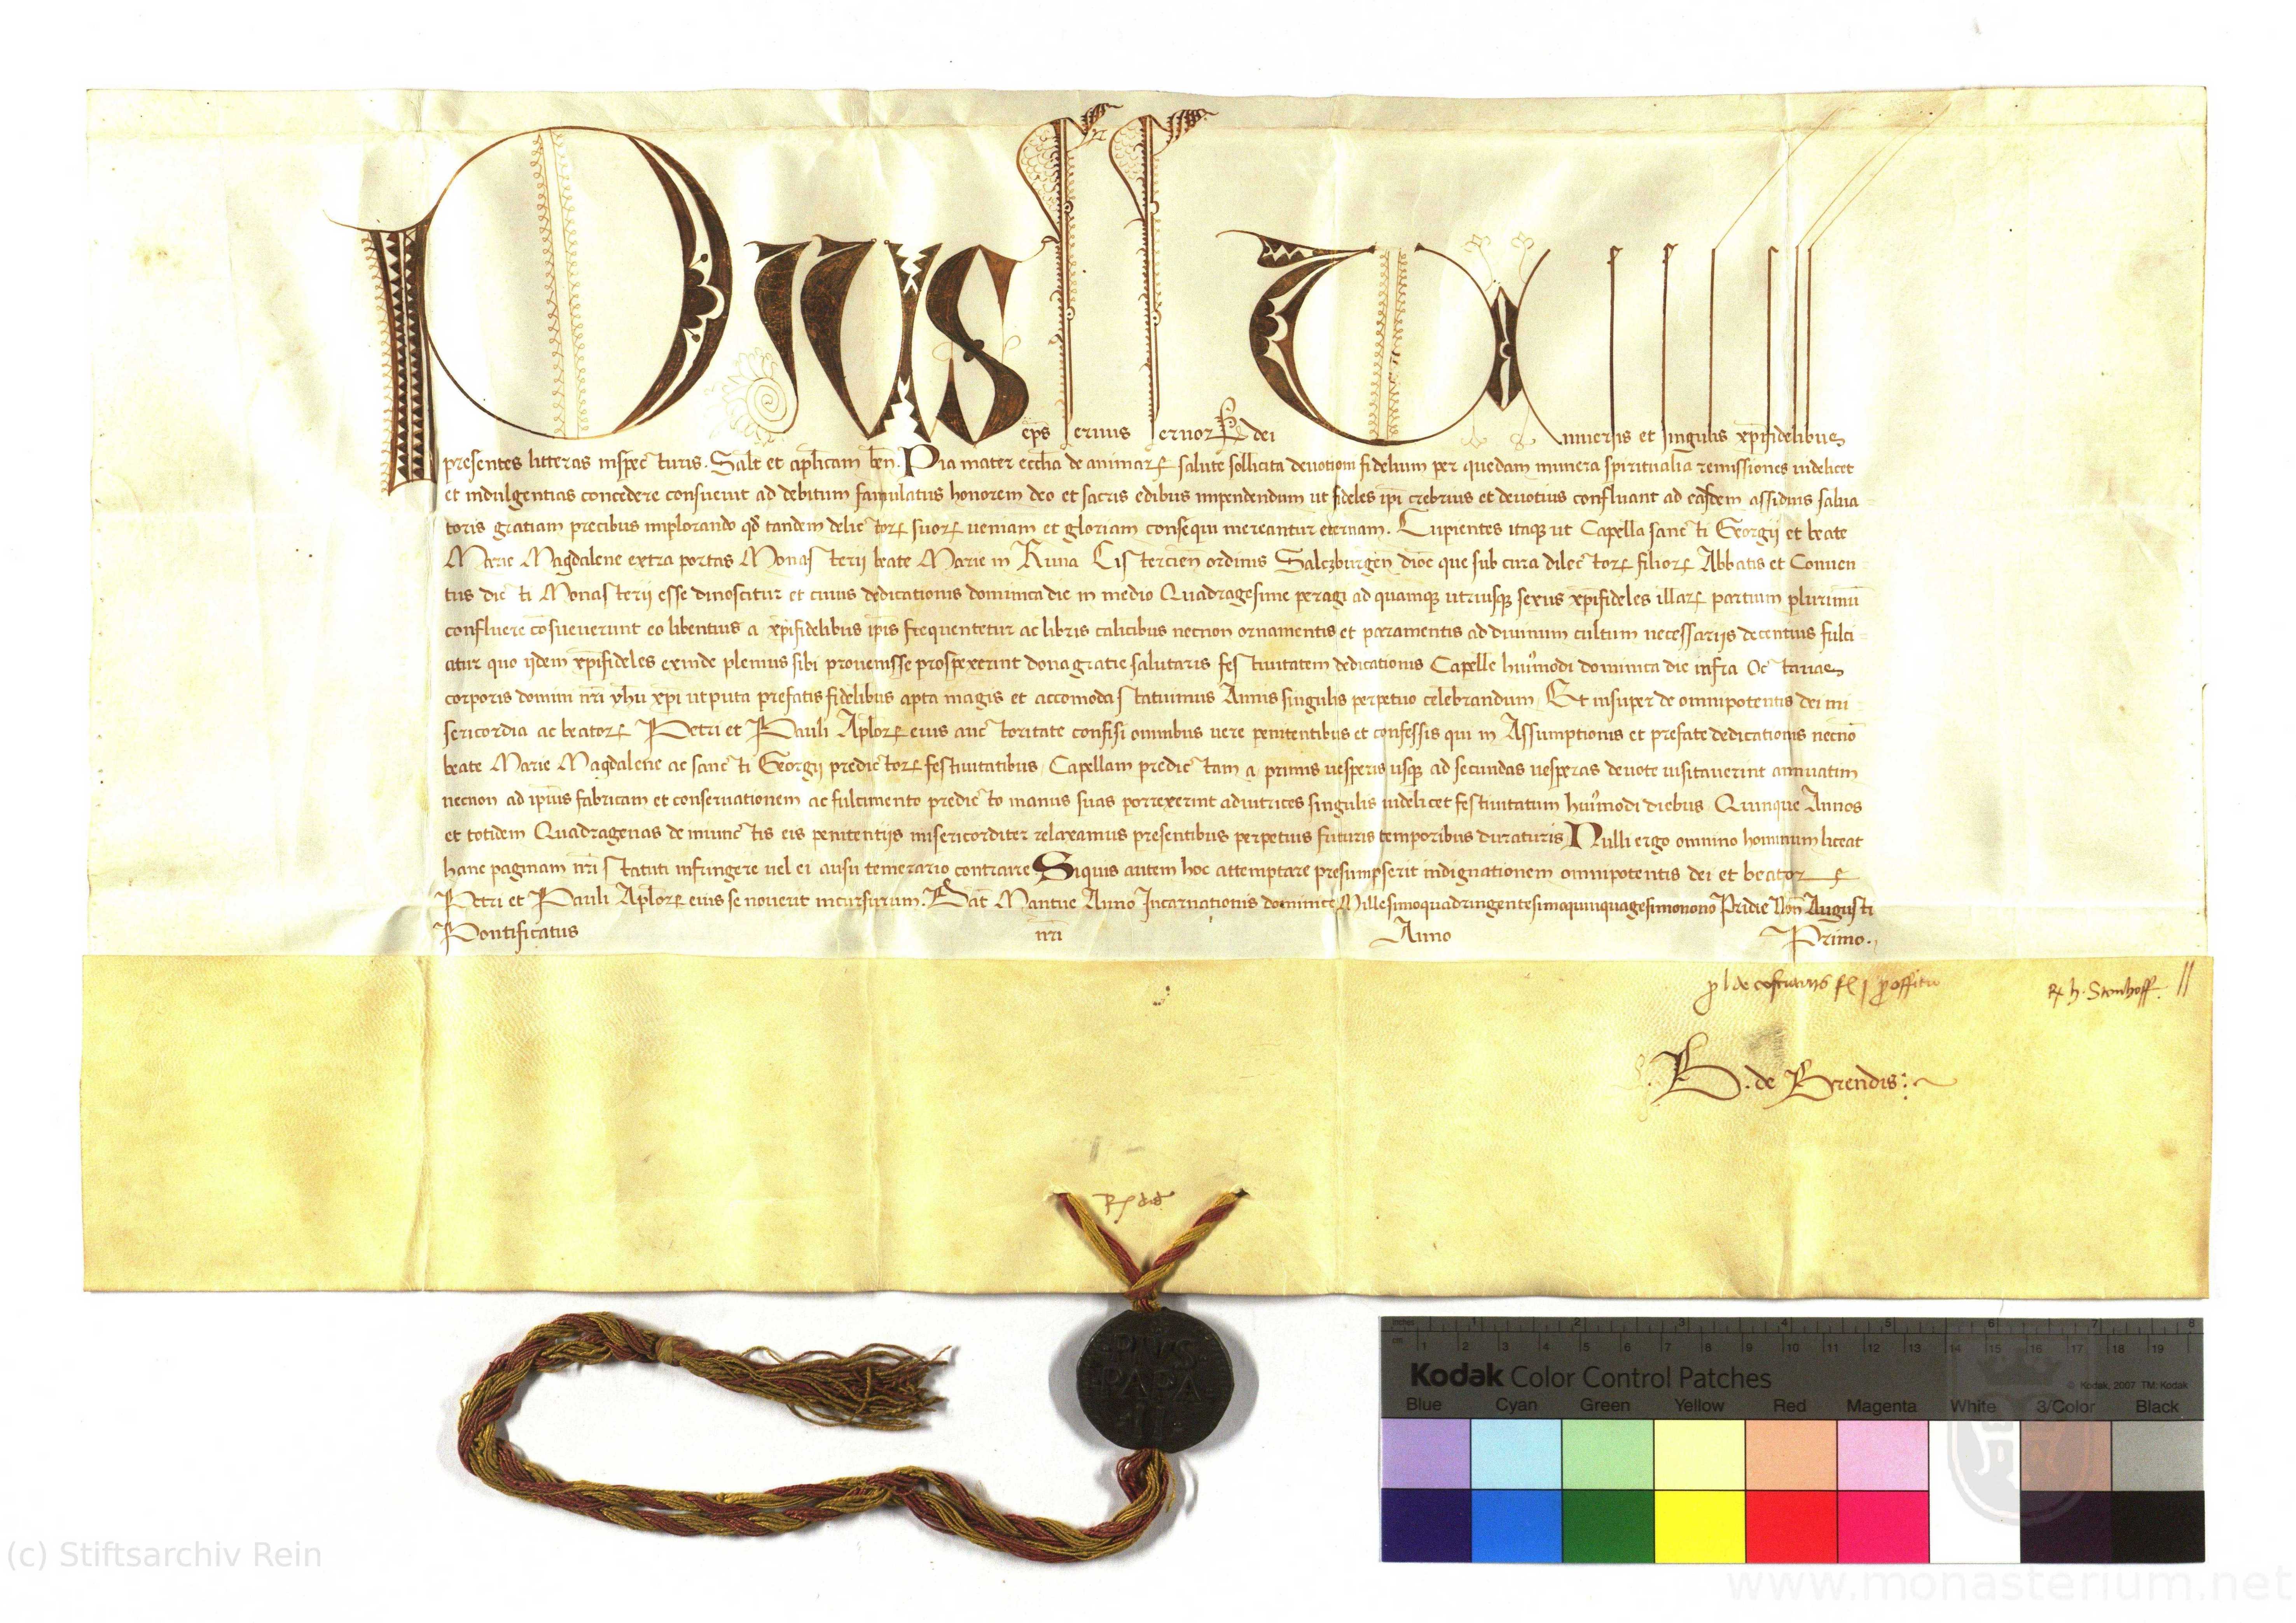 Pius eps seruus seruoꝝ dei Vniuersis et singulis xp̄ifidelibus
presentes litteras inspecturis. Salt̄ et apl̄icam ben̄. Pia mater eccl̄ia de animaꝝ salute sollicita deuotioni fidelium per quedam munera spiritualia remissiones uidelicet
et indulgentias concedere consueuit ad debitum famulatus honorem deo et sacris edibus impendendum ut fideles ip̄i crebrius et deuotius confluant ad easdem assidius salua-
toris gratiam precibus implorando qd̄ tandem delictoꝝ suoꝝ ueniam et gloriam consequi mereantur eternam. Cupientes itaqꝫ ut Capella sancti Georgij et beate
Marie Magdalene extra portas Monasterij beate Marie in Runa Cistercien̄ ordinis Salczburgen̄ dioc̄ que sub cura dilectoꝝ filioꝝ Abbatis et Conuen-
tus dicti Monasterij esse dinoscitur et cuius dedicationis dominica die in medio Quadragesime peragi ad quamqꝫ utriusqꝫ sexus xp̄ifideles illaꝝ partium plurimū
confluere cōsueuerunt eo libentius a xp̄ifidelibus ip̄is frequentetur ac libris calicibus necnon ornamentis et paramentis ad diuinum cultum necessarijs decentius fulci-
atur quo ijdem xp̄ifideles exinde plenius sibi prouenisse prospexerint dona gratie salutaris festiuitatem dedicationis Capelle huiꝰmodi dominica die infra Octauas
corporis domini nr̄i yhū xp̄i utputa prefatis fidelibus apta magis et accomoda statuimus Annis singulis perpetuo celebrandum. Et insuper de omnipotentis dei mi-
sericordia ac beatoꝝ Petri et Pauli Apl̄oꝝ eius auctoritate confisi omnibus uere penitentibus et confessis qui in Assumptionis et prefate dedicationis necnō
beate Marie Magdalene ac sancti Georgij predictoꝝ festiuitatibus Capellam predictam a primis uesperis usqꝫ ad secundas uesperas deuote uisitauerint annuatim
necnon ad ip̄ius fabricam et conseruationem ac fulcimento predicto manus suas porrexerint adiutrices singulis uidelicet festiuitatum huiꝰmodi diebus Quinque Annos
et totidem Quadragenas de iniunctis eis penitentijs misericorditer relaxamus presentibus perpetuis futuris temporibus duraturis Nulli ergo omnino hominum liceat
hanc paginam nr̄i statuti infringere uel ei ausu temerario contraire Siquis autem hoc attemptare presumpserit indignationem omnipotentis dei et beatoꝝ
Petri et Pauli Apl̄oꝝ eius se nouerit incursurum. Dat̄ Mantue Anno Incarnationis dominice Millesimoquadringentesimoquinquagesimonono Pridie Non̄ Augusti
Pontificatus nr̄i Anno Primo.
Rx h. Stenhoff
B. de Brendis:
PIVS
PAPA
II
inches 1 2 3 4 5 6 7 8
cm 1 2 3 4 5 6 7 8 9 10 11 12 13 14 15 16 17 18 19
Kodak Color Control Patches
© Kodak, 2007 TM: Kodak
Blue Cyan Green Yellow Red Magenta White 3/Color Black
(c) Stiftsarchiv Rein
www.monasterium.net